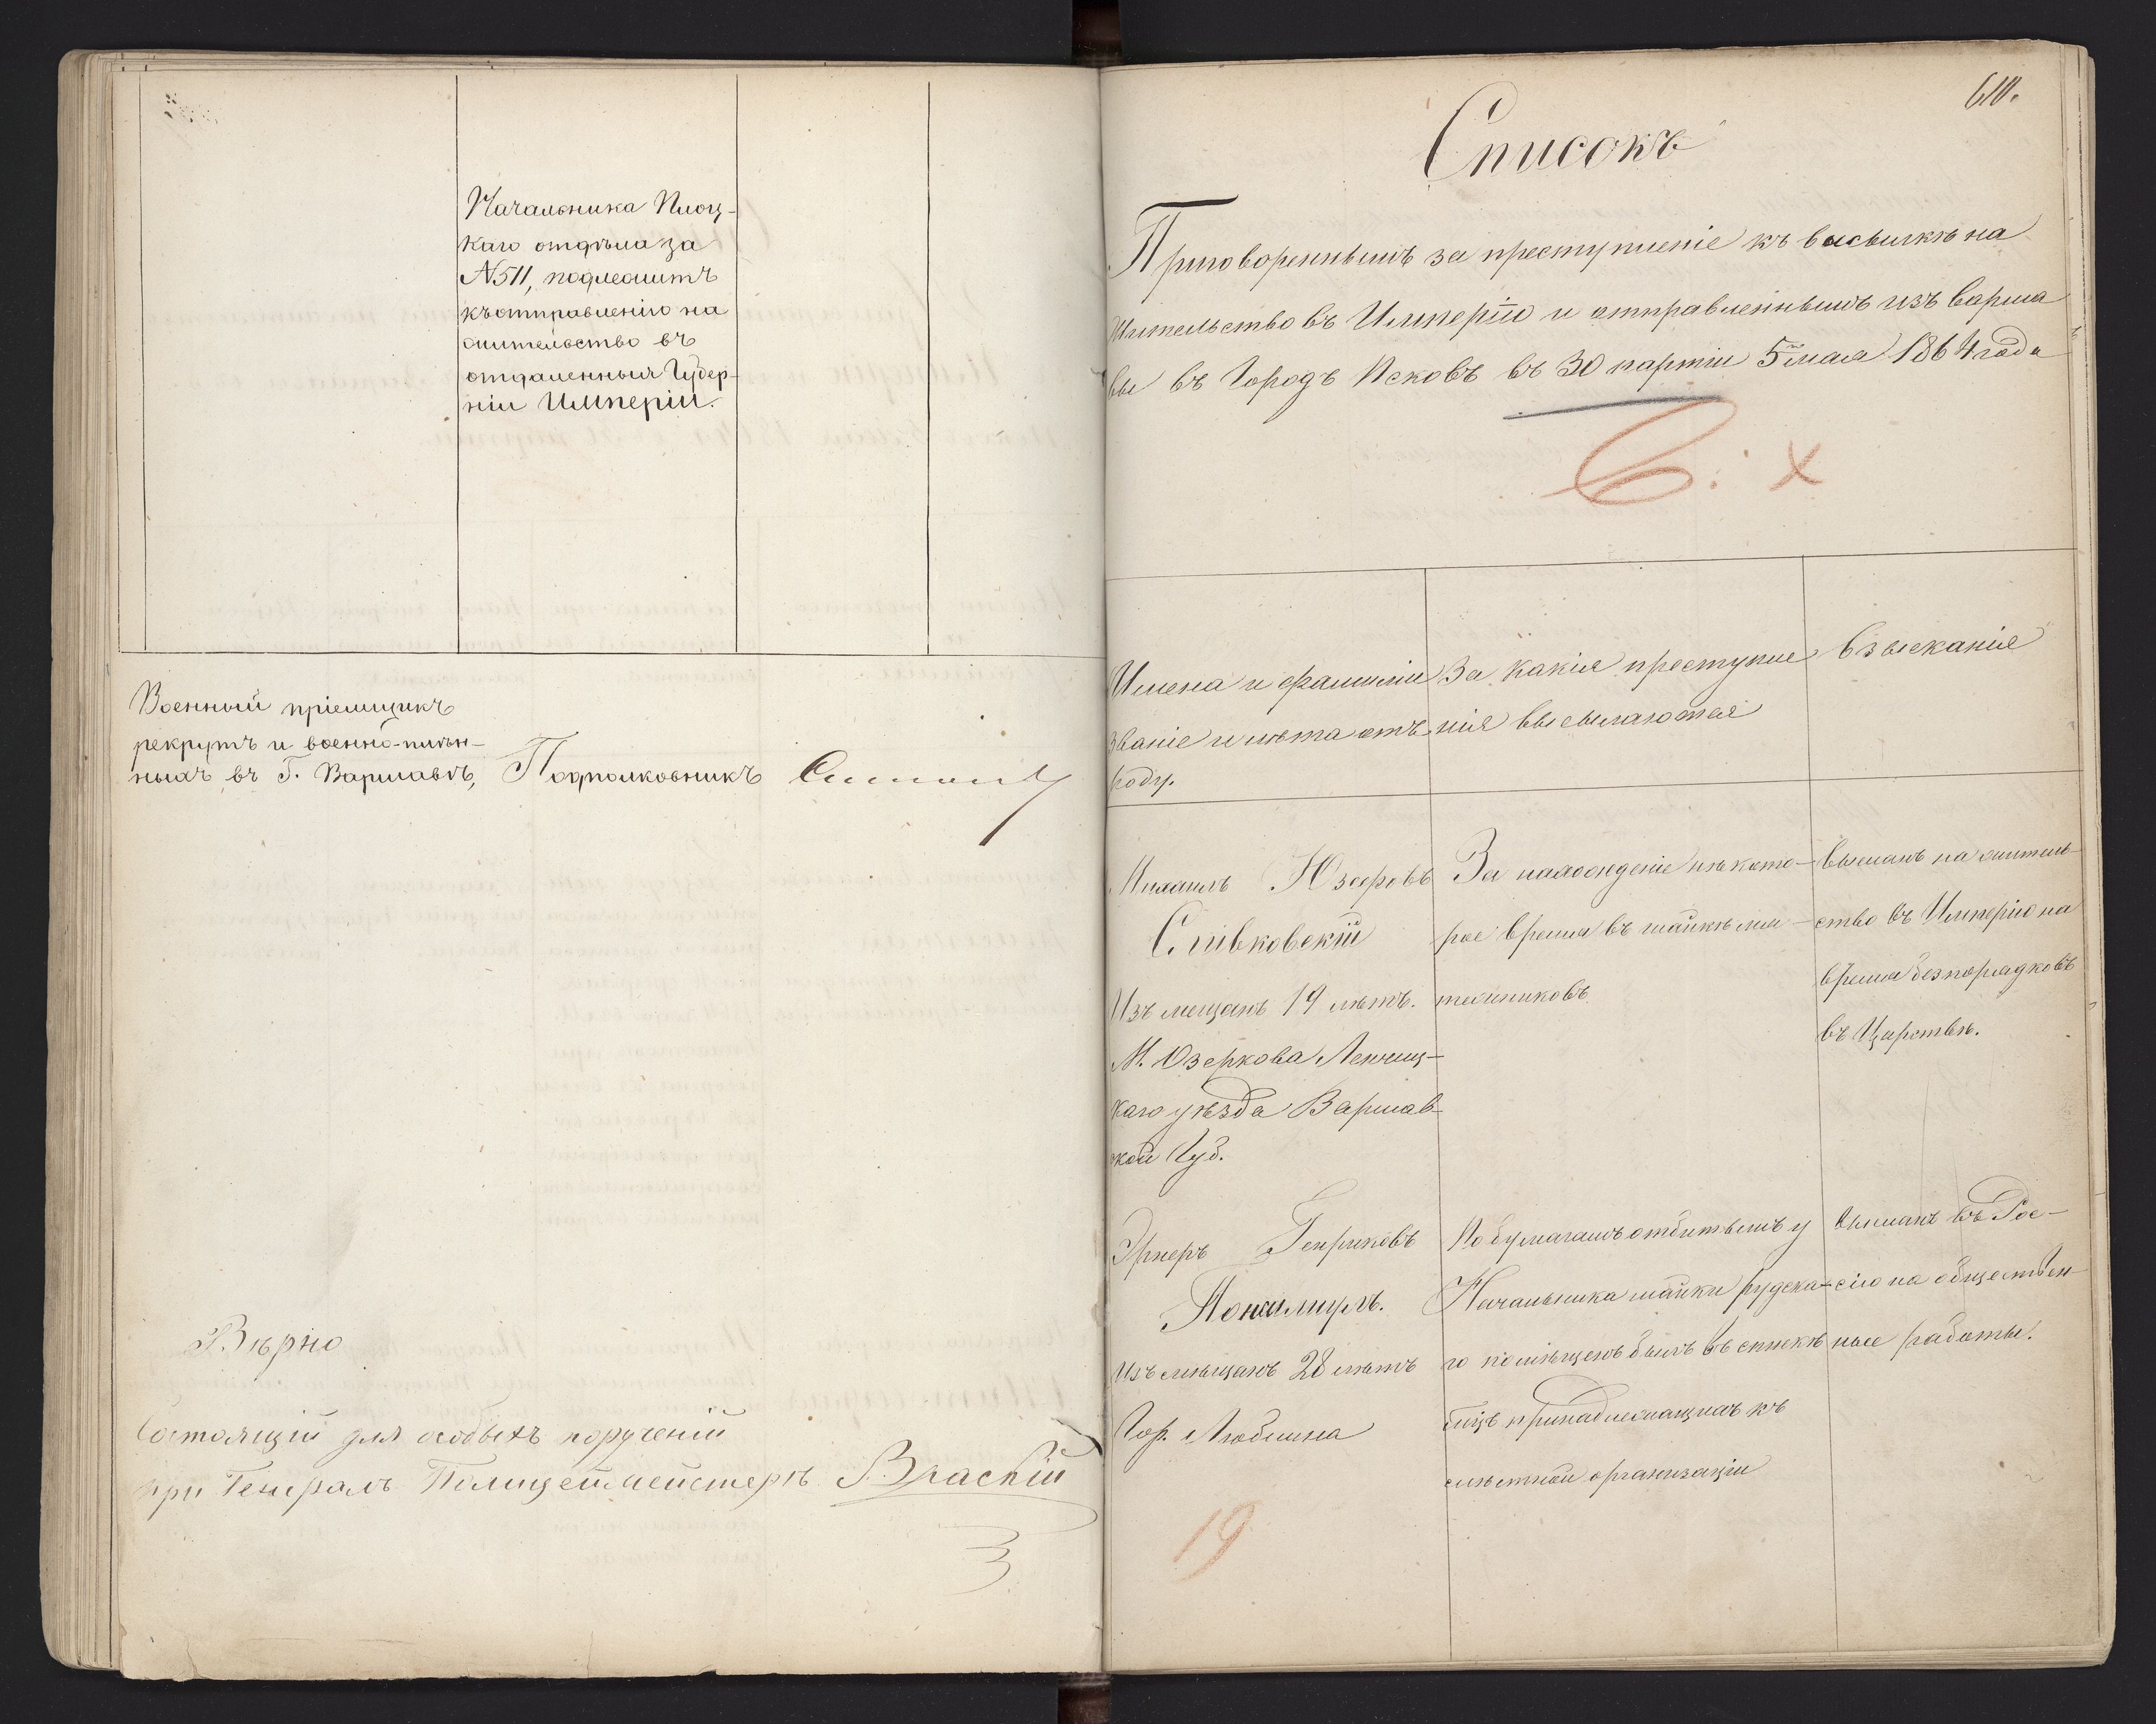 Начальника Плоц-
каго отдѣла за
№511, подлежитъ
къ отправленію на
жительство въ
отдаленныя Губер-
ніи Имперіи.
Военный пріемщикъ
рекрутъ и военно-плѣн-
ныхъ въ Г. Варшавѣ, Подполковникъ
Вѣрно
Состоящій для особыхъ порученій
при Генералъ Полицеймейстерѣ Власкій
Списокъ
Приговореннымъ за преступленіе къ высылкѣ на
жительство въ Имперію и отправленнымъ изъ Варша
вы въ Городъ Псковъ въ 30 партіи 5 мая 1864 года
Имена и фамиліи
званіе и лѣта отъ
роду.
За какія преступле
нія высылаются
Взысканія
Михаилъ Юзефовъ
Сливковскій
Изъ мещанъ 19 лѣтъ.
М. Озеркова Ленчиц-
каго уѣзда Варшав-
ской Губ.
За нахожденіе нѣкото-
рое время въ шайкѣ мя-
тежниковъ
Высланъ на житель-
ство въ Имперію на
время безпорядковъ
въ Царствѣ.
Эрнеръ Генриковъ
Изъ мѣщанъ 28 лѣтъ
Гор. Люблина
По бумагамъ отбитымъ у
Начальника шайки рудска-
го помѣщенъ былъ въ спискѣ
лицъ принадлежащихъ къ
мѣстной организаціи
Высланъ въ Рос-
сію на обществен-
ные работы.
19